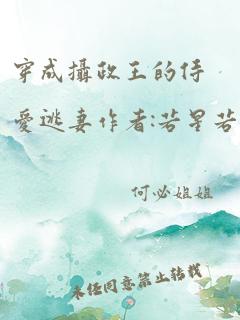 穿成攝政王的侍
愛逃妻作者:若星若
何必姐姐
未经同意禁止转载